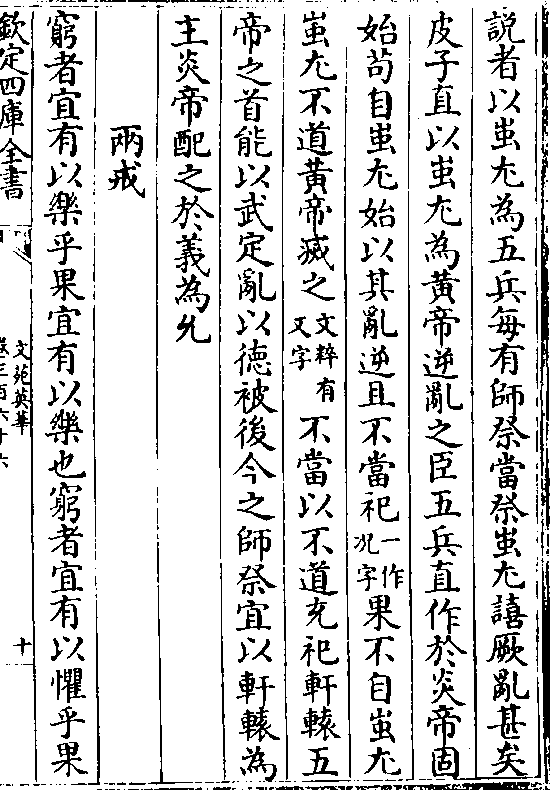 説者以蚩尤為五兵每有師祭當祭蚩尤譆厥亂甚矣
皮子直以蚩尤為黄帝逆亂之臣五兵直作於炎帝固
始茍自蚩尤始以其亂逆且不當祀一作况字果不自蚩尤
蚩尤不道黄帝滅之文粹有又字不當以不道充祀軒轅五
帝之首能以武定亂以徳被後今之師祭宜以軒轅為
主炎帝配之於義為允
兩戒
窮者宜有以樂乎果宜有以樂也窮者宜有以懼乎果
欽定四庫全書
文苑英華
卷三百六十六
十